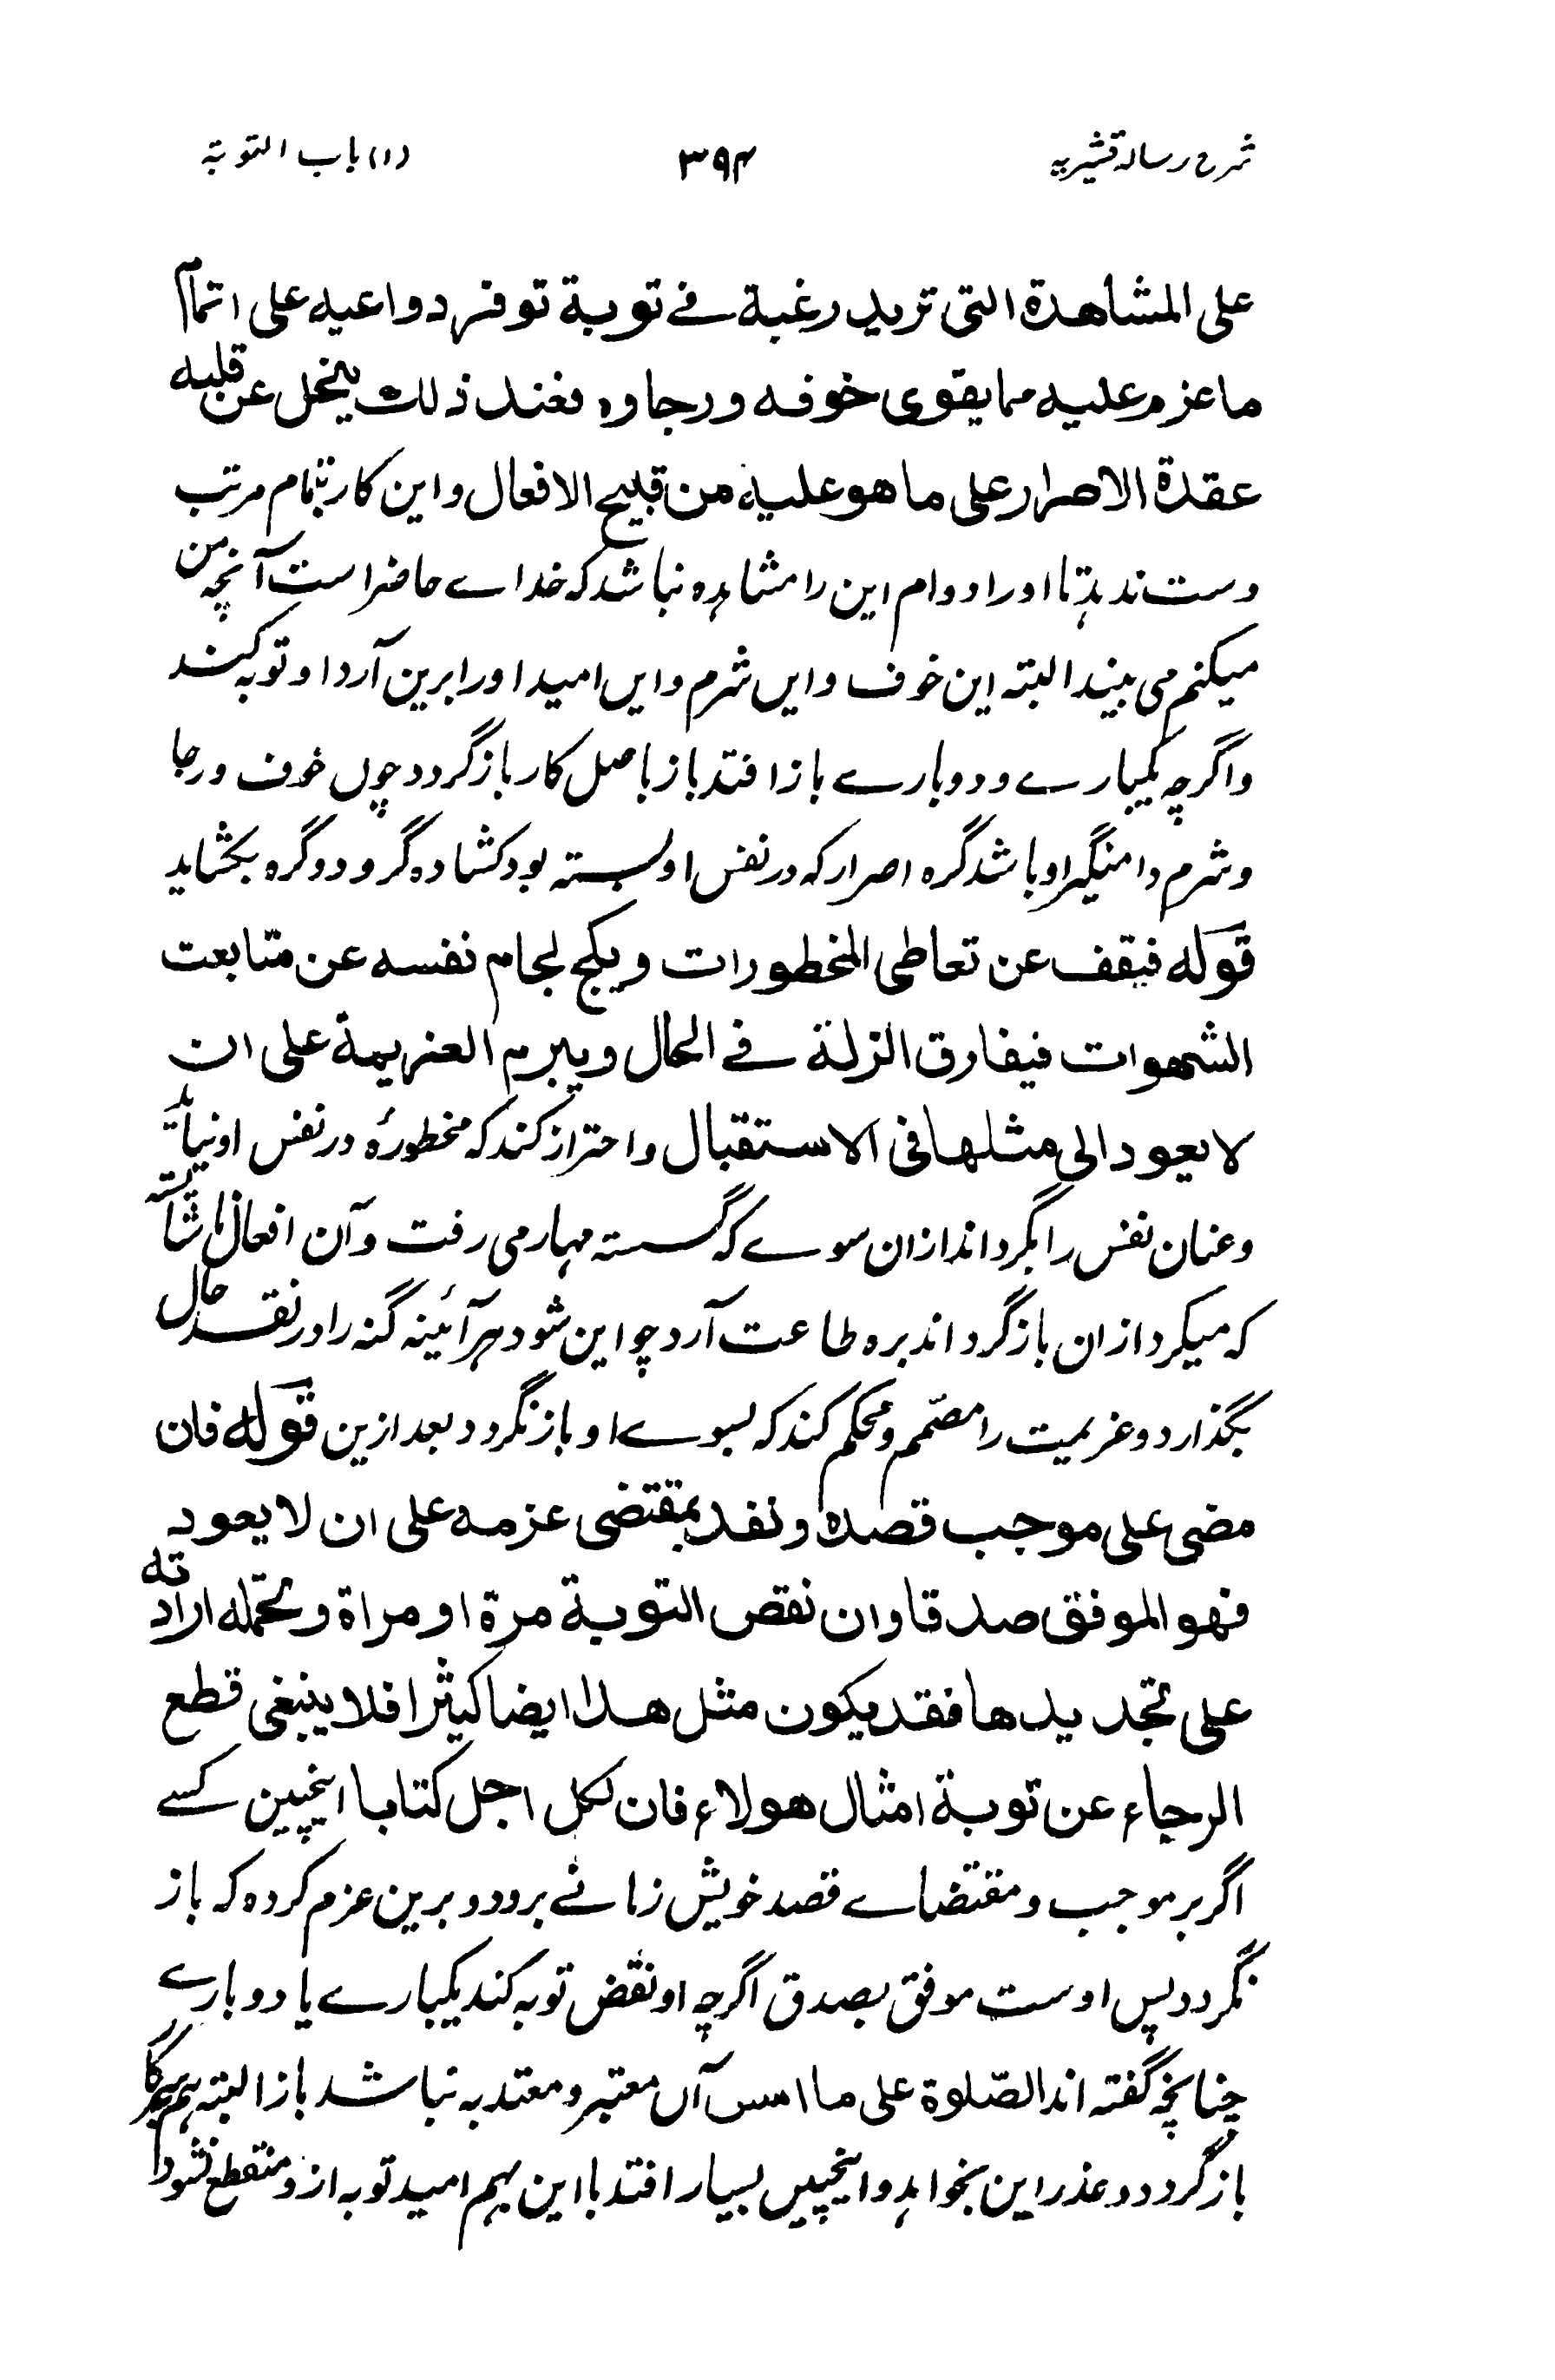 شرح رسالہ قشیریہ ۳۹۴ (۱) باب التوبۃ
علی المشاهدة التی تزید رغبة فے توبة توفر دواعیه علی اتمام
ما عزم علیه مما یقوی خوفه ورجاوه فعند ذلك ینحل عن قلبه
عقدة الاصرار علی ما هو علیه من قبیح الافعال واین کار بتمام مرتب
دست ندہد تا او را دوام این را مشاہدہ نباشد کہ خداے حاضر است آنچہ من
میکنم می بیند البتہ این خوف وایں شرم وایں امید او را برین آرد او توبہ کند
واگرچہ یکبارے و دوبارے باز افتد باز باصل کار باز گردد چوں خوف ورجا
و شرم دامنگیر او باشد گرہ اصرار کہ در نفس او بستہ بود کشادہ گردد و گرہ بکشاید
قوله فیقف عن تعاطی المخطورات ویکبح لجام نفسه عن متابعت
الشهوات فیفارق الزلة فے الحال ویبرم العزیمة علی ان
لا یعود الی مثلها فی الاستقبال واحتراز کند کہ مخطورۂ در نفس او نیاید
وعنان نفس را بگرداند ازان سوے کہ گسستہ مہار می رفت وآن افعال ناشائستہ
کہ میکرد ازان باز گرداند برہ طاعت آرد چو این شود ہر آئینہ گنہ را در نقد حال
بگذارد و عزیمت را مصمّم و محکم کند کہ بسوے او باز نگردد بعد ازین قوله فان
مضی علی موجب قصده ونفذ بمقتضی عزمه علی ان لا یعود
فهو الموفق صدقا وان نقص التوبة مرة او مراة وتحمله ارادته
علی تجدیدها فقد یکون مثل هذا ایضا کثیرا فلا ینبغی قطع
الرجاء عن توبة امثال هولاء فان لکل اجل کتابا اینچنین کسے
اگر بر موجب و مقتضاے قصد خویش زمانے برود و برین عزم کردہ کہ باز
نگردد پس اوست موفق بصدق اگرچہ او نقض توبہ کند یکبارے یا دوبارے
چنانچہ گفتہ اند الصّلوة علی ما امس آں معتبر و معتد بہ نباشد باز البتہ ہم
باز گردد و عذر این بخواہد و اینچنیں بسیار افتد با این ہم امید توبہ ازو منقطع نشود